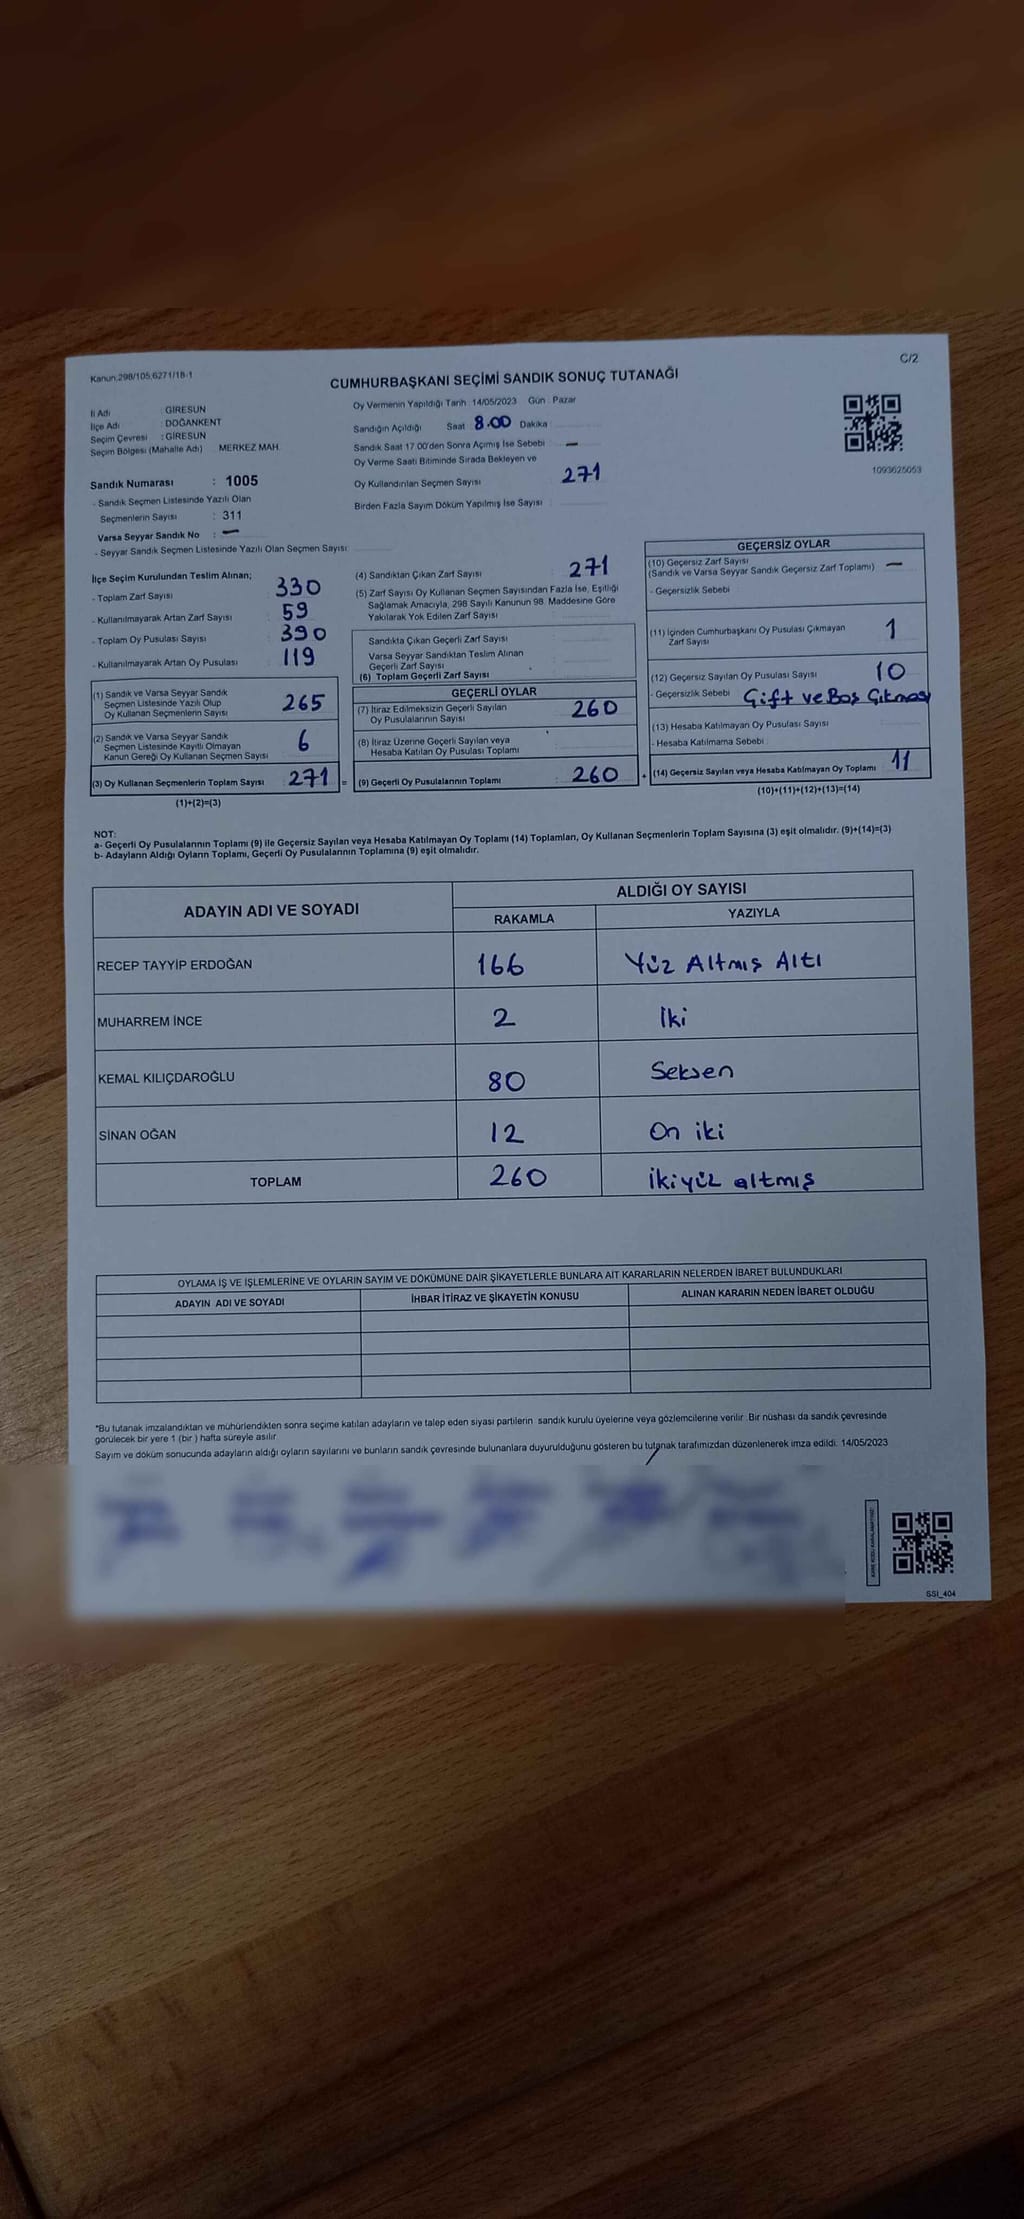 Kanun:298/105;6271/18-1
C/2
CUMHURBAŞKANI SEÇİMİ SANDIK SONUÇ TUTANAĞI
İl Adı : GİRESUN
İlçe Adı : DOĞANKENT
Seçim Çevresi : GİRESUN
Seçim Bölgesi (Mahalle Adı) MERKEZ MAH.
Sandık Numarası : 1005
- Sandık Seçmen Listesinde Yazılı Olan
Seçmenlerin Sayısı : 311
Varsa Seyyar Sandık No : —
- Seyyar Sandık Seçmen Listesinde Yazılı Olan Seçmen Sayısı
Oy Vermenin Yapıldığı Tarih 14/05/2023 Gün : Pazar
Sandığın Açıldığı Saat 8.00 Dakika
Sandık Saat 17.00'den Sonra Açımış İse Sebebi —
Oy Verme Saati Bitiminde Sırada Bekleyen ve
Oy Kullandırılan Seçmen Sayısı 271
Birden Fazla Sayım Döküm Yapılmış İse Sayısı :
1093625053
İlçe Seçim Kurulundan Teslim Alınan;
- Toplam Zarf Sayısı : 330
- Kullanılmayarak Artan Zarf Sayısı : 59
- Toplam Oy Pusulası Sayısı : 390
- Kullanılmayarak Artan Oy Pusulası : 119
(1) Sandık ve Varsa Seyyar Sandık
Seçmen Listesinde Yazılı Olup
Oy Kullanan Seçmenlerin Sayısı 265
(2) Sandık ve Varsa Seyyar Sandık
Seçmen Listesinde Kayıtlı Olmayan
Kanun Gereği Oy Kullanan Seçmen Sayısı 6
(3) Oy Kullanan Seçmenlerin Toplam Sayısı 271 =
(1)+(2)=(3)
(4) Sandıktan Çıkan Zarf Sayısı 271
(5) Zarf Sayısı Oy Kullanan Seçmen Sayısından Fazla İse, Eşitliği
Sağlamak Amacıyla, 298 Sayılı Kanunun 98. Maddesine Göre
Yakılarak Yok Edilen Zarf Sayısı
Sandıkta Çıkan Geçerli Zarf Sayısı
Varsa Seyyar Sandıktan Teslim Alınan
Geçerli Zarf Sayısı
(6) Toplam Geçerli Zarf Sayısı
GEÇERLİ OYLAR
(7) İtiraz Edilmeksizin Geçerli Sayılan
Oy Pusulalarının Sayısı : 260
(8) İtiraz Üzerine Geçerli Sayılan veya
Hesaba Katılan Oy Pusulası Toplamı
(9) Geçerli Oy Pusulalarının Toplamı : 260 +
GEÇERSİZ OYLAR
(10) Geçersiz Zarf Sayısı
(Sandık ve Varsa Seyyar Sandık Geçersiz Zarf Toplamı) —
- Geçersizlik Sebebi
(11) İçinden Cumhurbaşkanı Oy Pusulası Çıkmayan
Zarf Sayısı 1
(12) Geçersiz Sayılan Oy Pusulası Sayısı 10
- Geçersizlik Sebebi Çift ve Boş Çıkması
(13) Hesaba Katılmayan Oy Pusulası Sayısı
- Hesaba Katılmama Sebebi
(14) Geçersiz Sayılan veya Hesaba Katılmayan Oy Toplamı 11
(10)+(11)+(12)+(13)=(14)
NOT:
a- Geçerli Oy Pusulalarının Toplamı (9) ile Geçersiz Sayılan veya Hesaba Katılmayan Oy Toplamı (14) Toplamları, Oy Kullanan Seçmenlerin Toplam Sayısına (3) eşit olmalıdır. (9)+(14)=(3)
b- Adayların Aldığı Oyların Toplamı, Geçerli Oy Pusulalarının Toplamına (9) eşit olmalıdır.
ADAYIN ADI VE SOYADI
ALDIĞI OY SAYISI
RAKAMLA YAZIYLA
RECEP TAYYİP ERDOĞAN 166 Yüz Altmış Altı
MUHARREM İNCE 2 İki
KEMAL KILIÇDAROĞLU 80 Seksen
SİNAN OĞAN 12 On iki
TOPLAM 260 İkiyüz altmış
OYLAMA İŞ VE İŞLEMLERİNE VE OYLARIN SAYIM VE DÖKÜMÜNE DAİR ŞİKAYETLERLE BUNLARA AİT KARARLARIN NELERDEN İBARET BULUNDUKLARI
ADAYIN ADI VE SOYADI İHBAR İTİRAZ VE ŞİKAYETİN KONUSU ALINAN KARARIN NEDEN İBARET OLDUĞU
*Bu tutanak imzalandıktan ve mühürlendikten sonra seçime katılan adayların ve talep eden siyasi partilerin sandık kurulu üyelerine veya gözlemcilerine verilir. Bir nüshası da sandık çevresinde
görülecek bir yere 1 (bir ) hafta süreyle asılır.
Sayım ve döküm sonucunda adayların aldığı oyların sayılarını ve bunların sandık çevresinde bulunanlara duyurulduğunu gösteren bu tutanak tarafımızdan düzenlenerek imza edildi. 14/05/2023
SSI_404